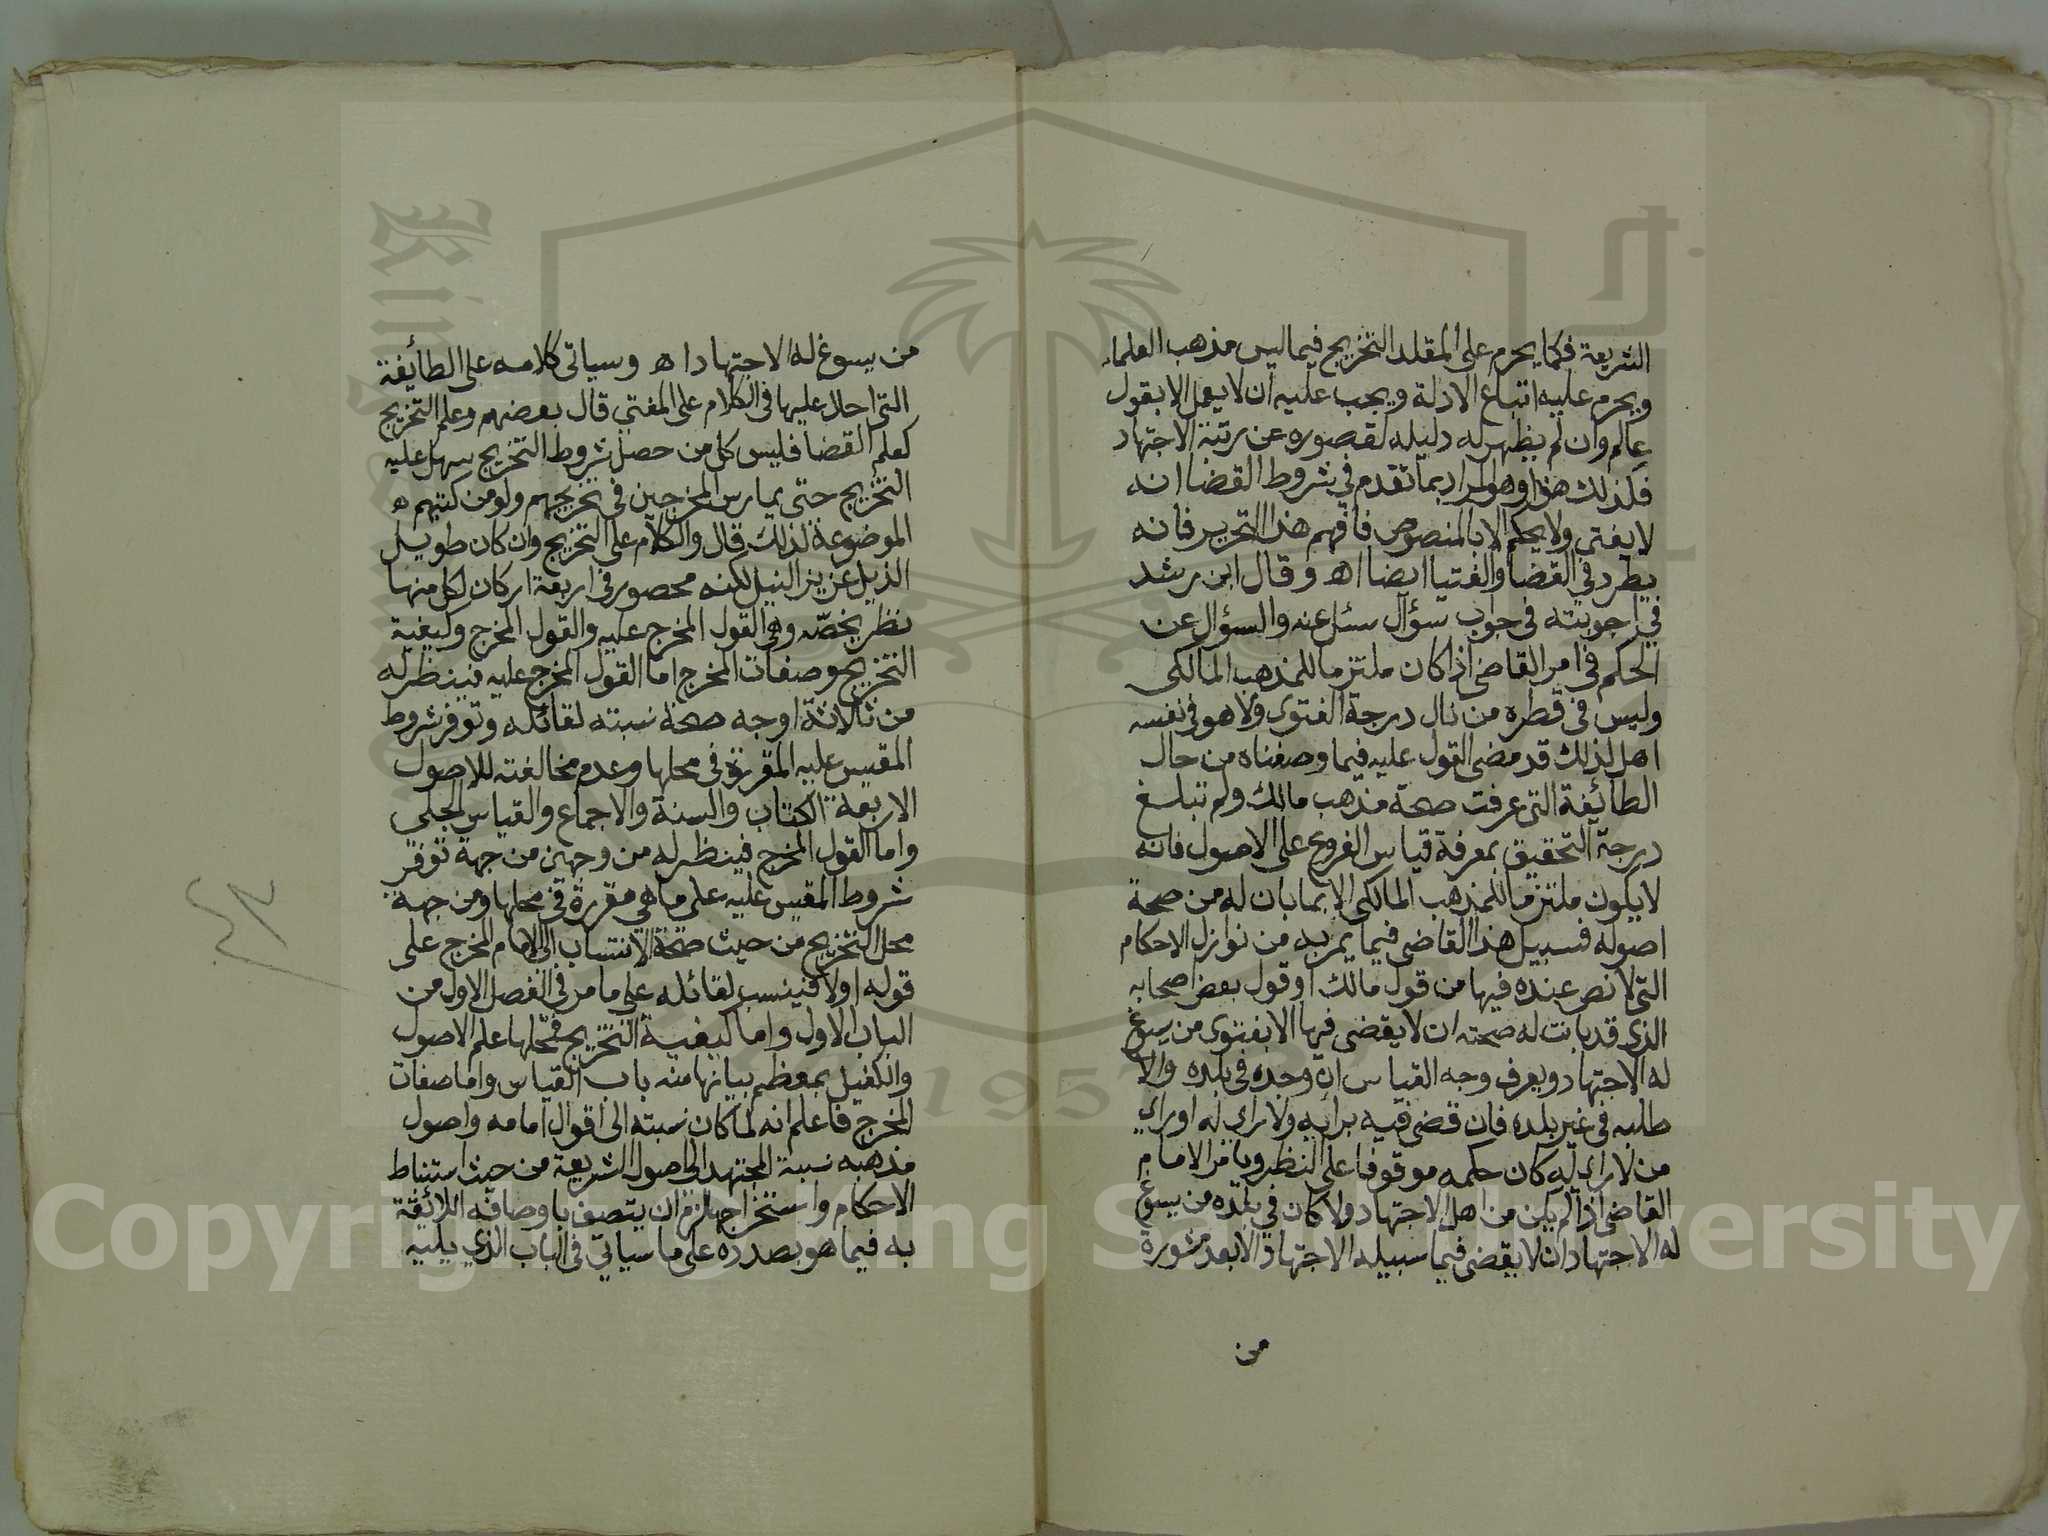 الشريعة فكما يحرم على المقلد التخريج فيما ليس مذهب العلماء
ويحرم عليه اتباع الادلة ويجب عليه ان لا يعمل الا بقول
عالم وان لم يظهر له دليله لقصوره عن رتبة الاجتهاد
فكذلك هنا وهو المراد بما تقدم في شروط القضا انه
لا يفتي ولا يحكم الا بالمنصوص فافهم هذا التحرير فانه
يطرد في القضا والفتيا ايضا اه وقال ابن رشد
في اجوبته في جواب سؤال سئل عنه والسؤال عن
الحكم في امر القاضي اذا كان ملتزما للمذهب المالكي
وليس في قطره من نال درجة الفتوى ولا هو في نفسه
اهل لذلك قد مضى القول عليه فيما وصفناه من حال
الطائفة التي عرفت صحة مذهب مالك ولم تبلغ
درجة التحقيق بمعرفة قياس الفروع على الاصول فانه
لا يكون ملتزما للمذهب المالكي الا بما بان له من صحة
اصوله فسبيل هذا القاضي فيما يمر به من نوازل الاحكام
التي لا نص عنده فيها من قول مالك او قول بعض اصحابه
الذي قد بانت له صحته ان لا يقضي فيها الا بفتوى من يسوغ
له الاجتهاد ويعرف وجه القياس ان وجده في بلده والا
طلبه في غير بلده فان قضى فيه برأيه ولا راي له او راي
من لا راي له كان حكمه موقوفا على النظر ويامر الامام
القاضي اذا لم يكن من اهل الاجتهاد ولا كان في بلده من يسوغ
له الاجتهاد ان لا يقضي فيما سبيله الاجتهاد الا بعد مشورة
من
من يسوغ له الاجتهاد اه وسياتى كلامه على الطائفة
التي احال عليها في الكلام على المفتي قال بعضهم وعلم التخريج
كعلم القضا فليس كل من حصل شروط التخريج سهل عليه
التخريج حتى يمارس المخرجين في تخريجهم ولو من كتبهم ه
الموضوعة لذلك قال والكلام على التخريج وان كان طويل
الذيل عزيز النيل لكنه محصور في اربعة اركان لكل منها
نظر يخصه وهي القول المخرج عليه والقول المخرج وكيفية
التخريج وصفات المخرج اما القول المخرج عليه فينظر له
من ثلاثة اوجه صحة نسبته لقائله وتوفر شروط
المقيس عليه المقررة في محلها وعدم مخالفته للاصول
الاربعة الكتاب والسنة والاجماع والقياس الجلي
واما القول المخرج فينظر له من وجهين من جهة توفر
شروط المقيس عليه على ما هي مقررة في محلها ومن جهة
محل التخريج من حيث صحة الانتساب الى الامام المخرج على
قوله اولا فينسب لقائله على ما مر في الفصل الاول من
الباب الاول واما كيفية التخريج فمحلها علم الاصول
والكفيل بمعظم بيانها منه باب القياس واما صفات
المخرج فاعلم انه لما كان نسبته الى اقوال امامه واصول
مذهبه نسبة المجتهد الى اصول الشريعة من حيث استنباط
الاحكام واستخراجها لزم ان يتصف باوصافه اللائقة
به فيما هو بصدده على ما سياتي في الباب الذي يليه
King
1957
Copyright © King Saud University